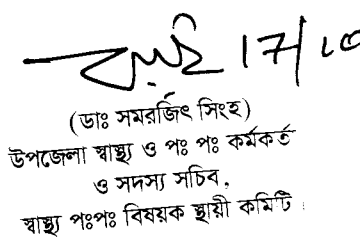 17/10
(ডাঃ সমরজিৎ সিংহ)
উপজেলা স্বাস্থ্য ও পঃ পঃ কর্মকর্ত
ও সদস্য সচিব,
স্বাস্থ্য পঃপঃ বিষয়ক স্থায়ী কমিটি।